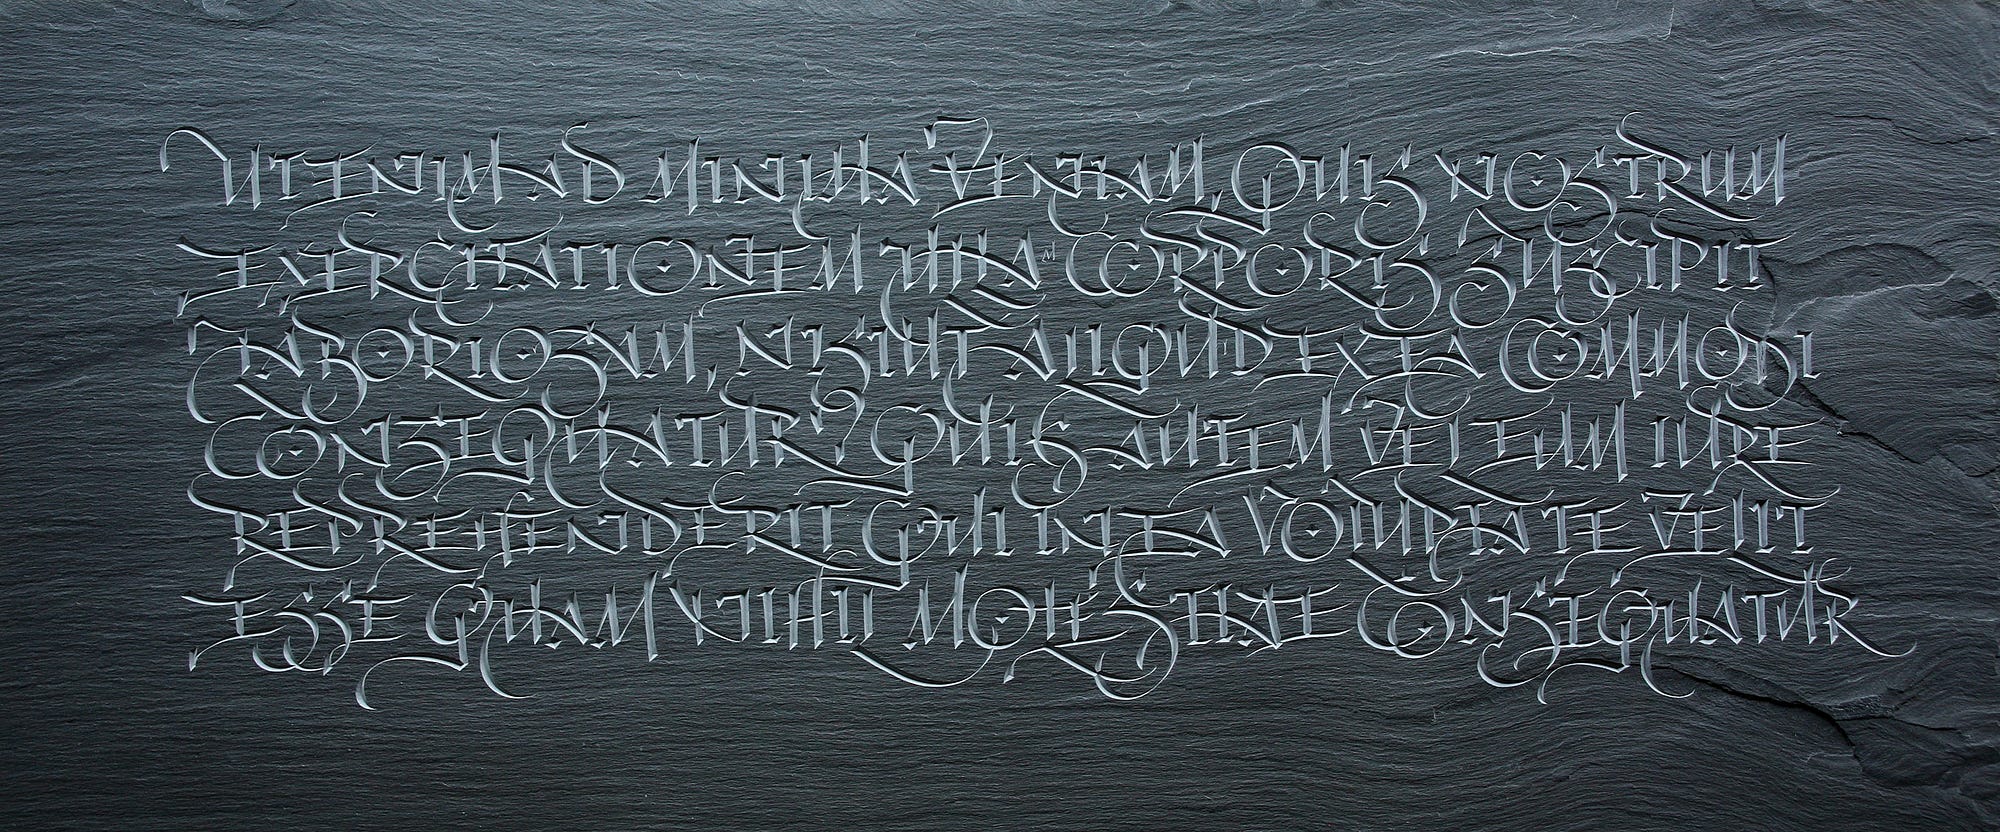 UT ENIM AD MINIMA VENIAM, QUIS NOSTRUM
EXERCITATIONEM ULLAM CORPORIS SUSCIPIT
LABORIOSAM, NISI UT ALIQUID EX EA COMMODI
CONSEQUATUR? QUIS AUTEM VEL EUM IURE
REPREHENDERIT QUI IN EA VOLUPTATE VELIT
ESSE QUAM NIHIL MOLESTIAE CONSEQUATUR